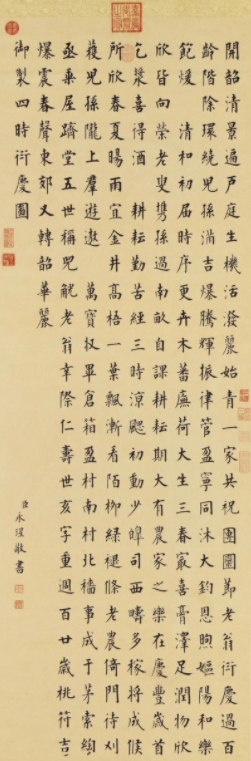 開韶清景遍戶庭生機活潑麗始青一家共祝團圞節老翁衍慶過百
齡階除環繞兒孫滿吉爆騰輝振律管盈寧同沐大鈞恩煦嫗陽和樂
飽煖 清和初屆時序更卉木蕃廡荷大生三春最喜膏澤足潤物欣
欣皆向榮老叟攜孫過南畝自課耕耘期大有農家之樂在慶豐歲首
乞漿喜得酒 耕耘勤苦經三時涼颸初動少皞司西疇多稼將成候
所欣春夏暘雨宜金井高梧一葉飄漸看陌柳綠褪條老農倚門待刈
穫兒孫隴上羣遊遨 萬寶收畢倉箱盈村南村北穡事成于茅索綯
亟乘屋躋堂五世稱兕觥老翁幸際仁壽世亥字重週百廿歲桃符吉
爆震春聲東郊又轉韶華麗
御製四時衍慶圖
臣永瑆敬書